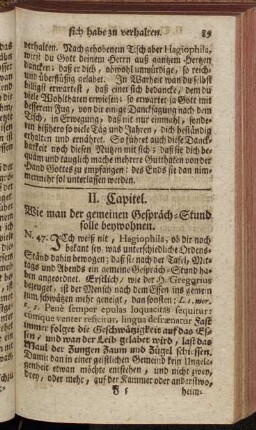 sich habe zu verhalten. 89
verhalten. Nach gehobenem Tisch aber Hagiophila,
wirst du Gott deinem Herrn auß gantzem Hertzen
dancken: daß er dich, obwohl unwürdige, so reich-
und überflüßig gelabet. In Warheit wan du selbst
billigst erwartest, daß einer sich bedancke, dem du
eine Wohlthaten erwisen: so erwartet ja Gott mit
besserem Fug, von dir einige Dancksagung nach dem
Tisch, in Erwegung, daß dich nit nur einmahl, sonde-
ren bißhero so viele Täg und Jahren, dich beständig
erhalten und ernähret. So führet auch diese Danck-
barkeit noch diesen Nutzen mit sich: daß sie dich be-
quäm und tauglich mache mehrere Gutthaten von der
Hand Gottes zu empfangen: des Ends sie dan nim-
mehr sol unterlassen werden.
II. Capitel.
Wie man der gemeinen Gespräch-Stund
solle beywohnen.
N. 47. ICh weiß nit, Hagiophila, ob dir noch
bekant sey, was unterschidliche Ordens-
Ständ dahin bewogen; daß sie nach der Tafel, Mit-
tags und Abends ein gemeine Gespräch-Stund ha-
ben angeordnet. Erstlich, wie der H. Gregorius
bezeuget, ist der Mensch nach dem Essen ins gemein
zum schwätzen mehr geneigt, dan sonsten: L. 1. mor.
c. 5. Penè semper epulas loquacitas sequitur:
cùmque venter reficitur, lingua defrænatur Fast
immer folget die Geschwätzigkeit auf das Es-
sen, und wan der Leib gelabet wird, last das
Maul der Zungen Zaum und Zügel schiessen.
Damit dan in einer geistlichen Gemeind kein Ungele-
genheit etwan möchte entstehen, und nicht zwey,
drey, oder mehr, auf der Kammer oder anderstwo,
F 5 heim-